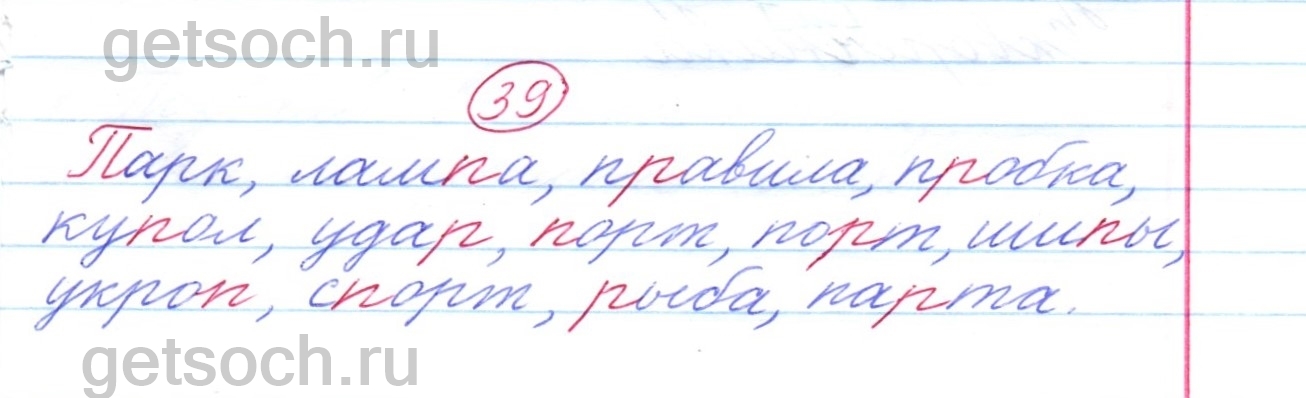 getsoch.ru
39
Парк, лампа, правила, пробка,
купол, удар, порт, порт, шипы,
укроп, спорт, рыба, парта.
getsoch.ru